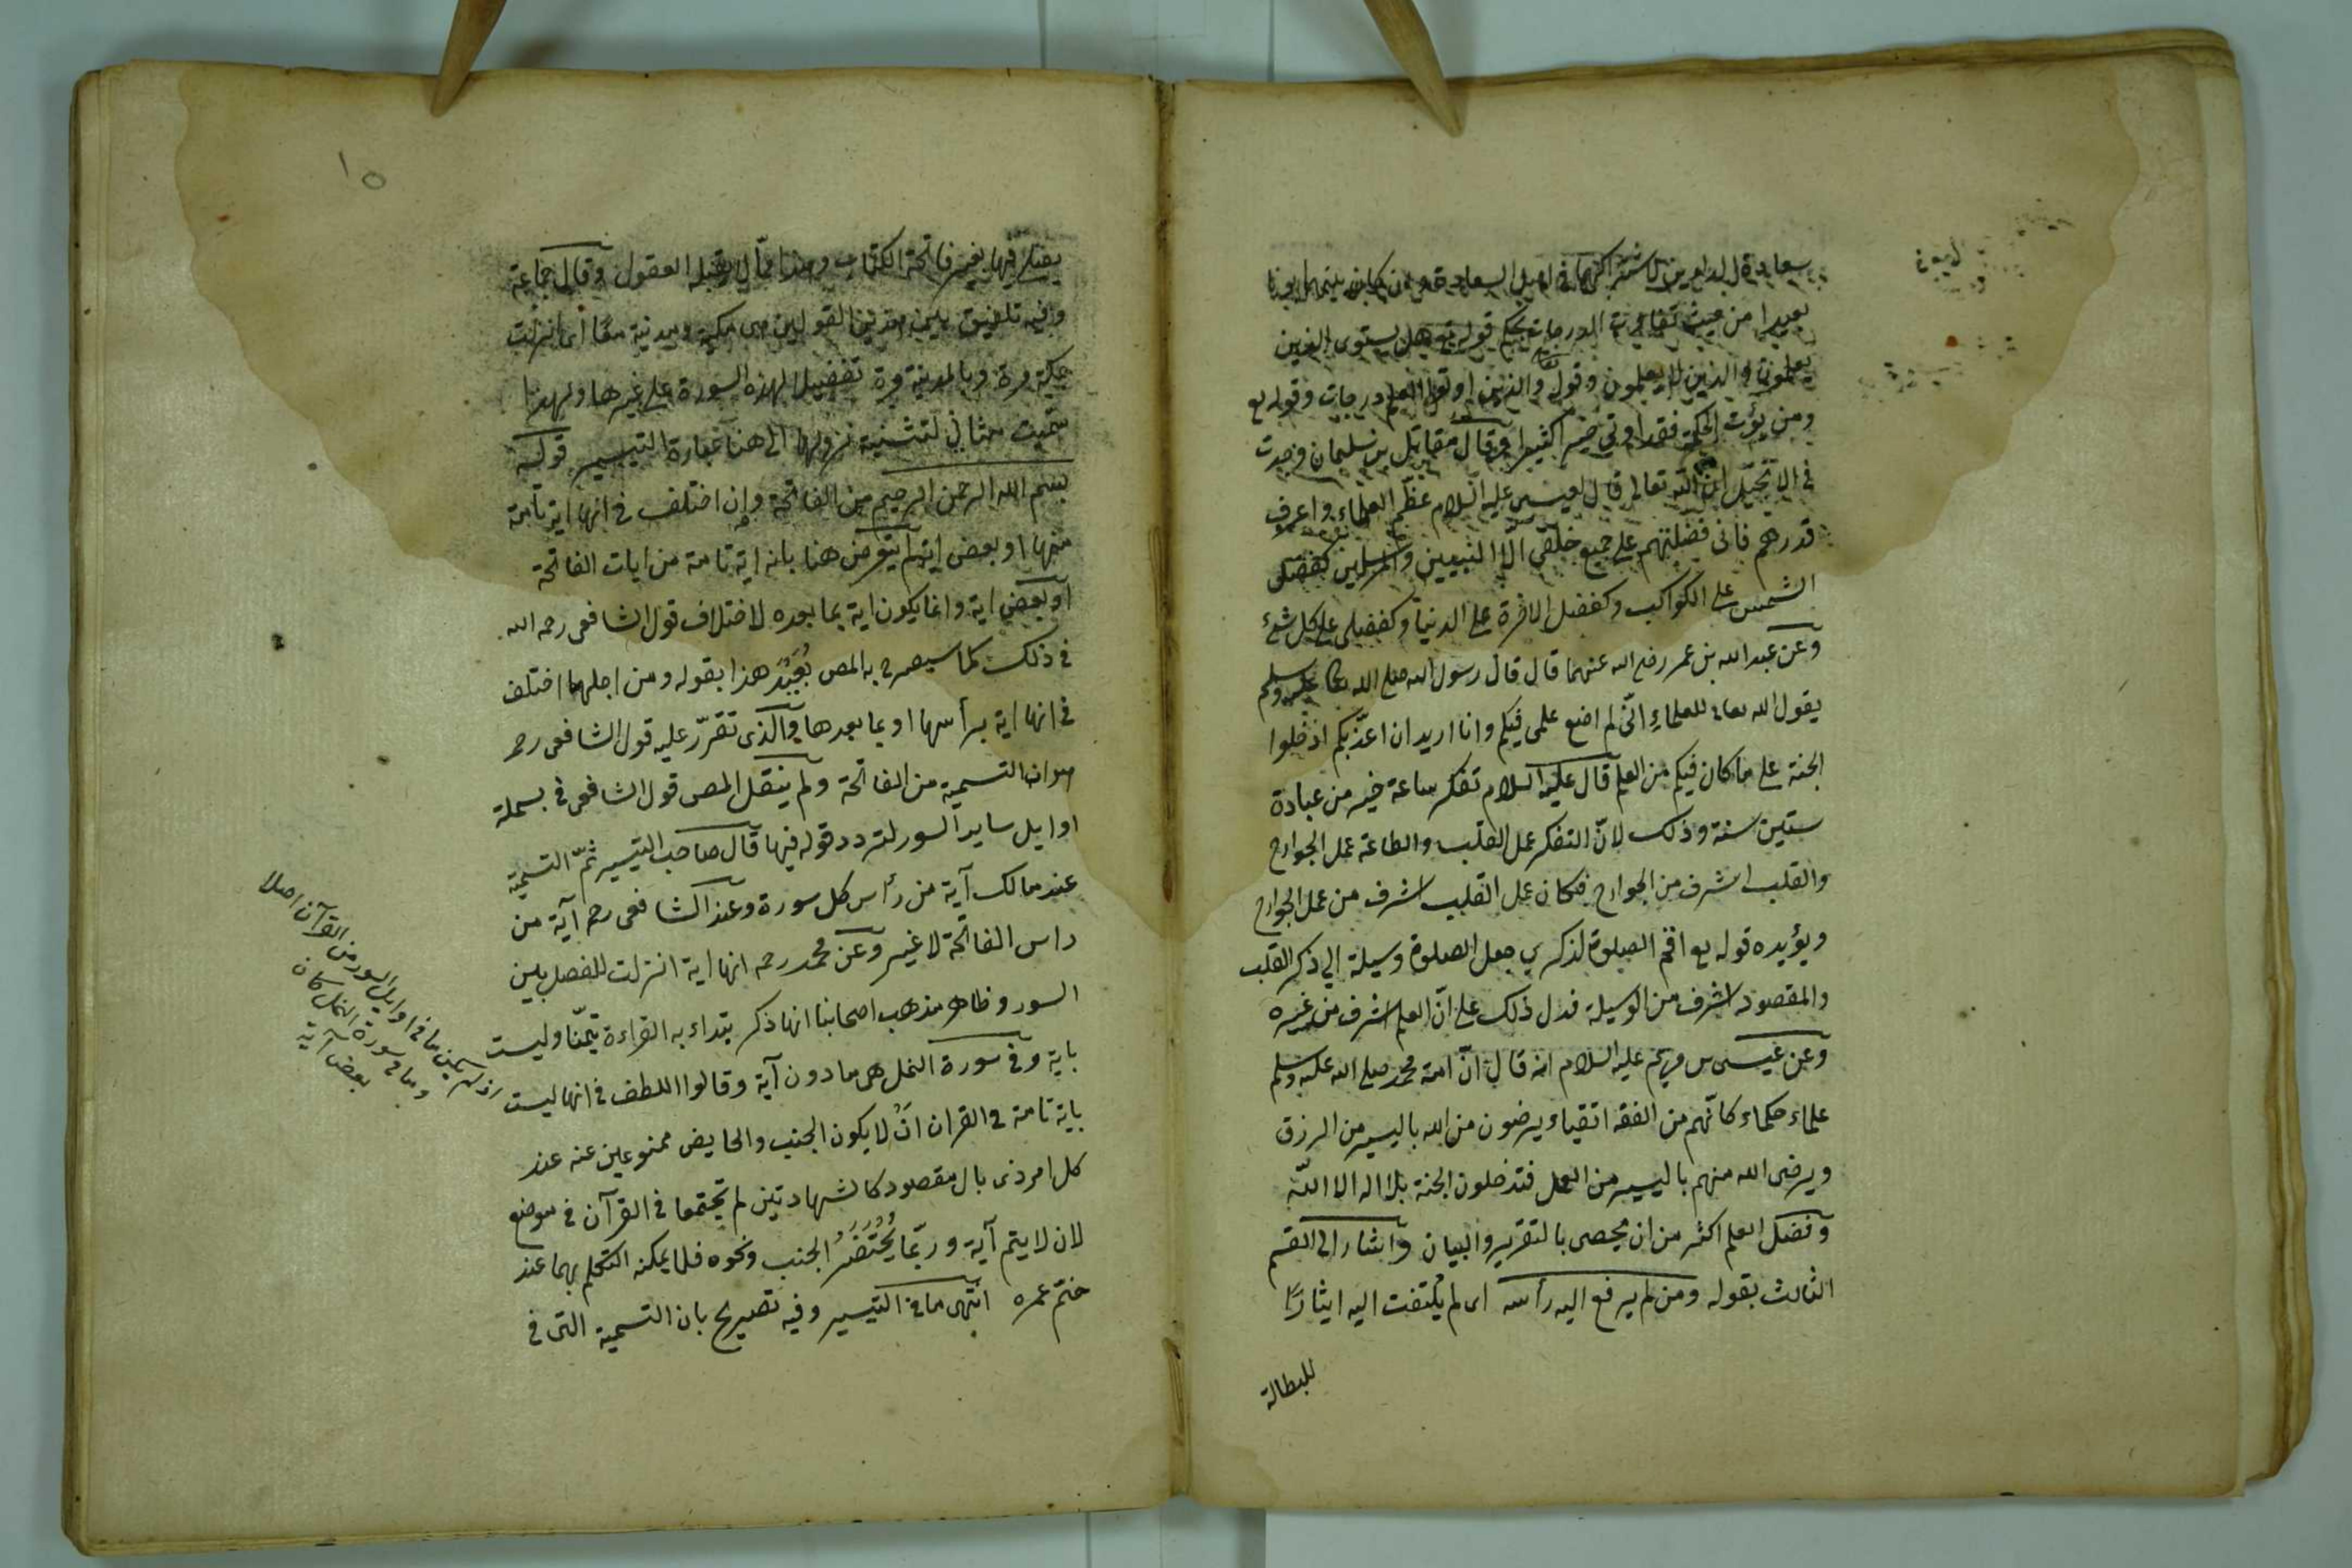 سعادة الدارين لاشتراكهما في اصل السعادة وان كان بينهما بونا
بعيدا من حيث تفاوت الدرجات بحكم قوله تع هل يستوى الذين
يعلمون والذين لا يعلمون وقوله تعالى والذين اوتوا العلم درجات وقوله تع
ومن يؤت الحكمة فقد اوتي خيرا كثيرا وقال مقاتل بن سليمان وجدت
في الانجيل ان الله تعالى قال لعيسى عليه السلام عظّم العلماء واعرف
قدرهم فانى فضلتهم على جميع خلقى الّا النبيين والمرسلين كفضل
الشمس على الكواكب وكفضل الاخرة على الدنيا وكفضلى على كل شئ
وعن عبد الله بن عمر رضى الله عنهما قال قال رسول الله صلى الله تعا عليه وسلم
يقول الله تعالى للعلماء انّى لم اضع علمى فيكم وانا اريد ان اعذّبكم ادخلوا
الجنة على ما كان فيكم من العلم قال عليه السلام تفكر ساعة خير من عبادة
ستين سنة وذلك لانّ التفكر عمل القلب والطاعة عمل الجوارح
والقلب اشرف من الجوارح فكان عمل القلب اشرف من عمل الجوارح
ويؤيده قوله تع اقم الصلوة لذكري جعل الصلوة وسيلة الي ذكر القلب
والمقصود اشرف من الوسيلة فدل ذلك على انّ العلم اشرف من غيره
وعن عيسى بن مريم عليه السلام انه قال انّ امة محمد صلى الله عليه وسلم
علماء حكماء كانّهم من الفقه اتقياء يرضون من الله باليسير من الرزق
ويرضى الله منهم باليسير من العمل فتدخلون الجنة بلا اله الا اللّه
وفضل العلم اكثر من ان يحصى بالتقرير والبيان واشار الى القسم
الثالث بقوله ومن لم يرفع اليه رأسه اى لم يلتفت اليه ايثارًا
للبطالة
١٥
يصلى فيها بغير فاتحة الكتاب وهذا ممّا لا يقبله العقول وقال جماعة
وفيه تلفيق بين هذين القولين هى مكية ومدنية معًا اى انزلت
بمكة مرة وبالمدينة مرة تفضيلا لهذه السورة على غيرها ولهذا
سميت مثاني لتثنية نزولها الى هنا عبارة التيسير قوله
بسم الله الرحمن الرحيم من الفاتحة وإن اختلف في انها اية تامة
منها او بعض اية لم يتعرض هنا بانه اية تامة من ايات الفاتحة
او بعض اية وانما يكون اية بما بعده لاختلاف قول الشافعى رحمه الله
في ذلك كما سيصرح به المص بُعَيْدَ هذا بقوله ومن اجلهما اختلف
في انها اية برأسها او بما بعدها والذى تقرّر عليه قول الشافعى رحمه
هو ان التسمية من الفاتحة ولم ينقل المص قول الشافعى في بسملة
اوايل ساير السور لتردد قوله فيها قال صاحب التيسير ثمّ التسمية
عند مالك آية من رأس كل سورة وعند الشافعى رحمه آية من
راس الفاتحة لا غير وعن محمد رحمه انها اية انزلت للفصل بين
السور وظاهر مذهب اصحابنا انها ذكر يبتداء به القراءة تيمّنا وليست
باية وفي سورة النمل هى ما دون آية وقالوا اللطف في انها ليست
باية تامة في القران انْ لا يكون الجنب والحايض ممنوعين عنه عند
كل امر ذى بال مقصود كالشهادتين لم تجتمعا في القرآن في موضع
لان لا يتم آية وربّما يُحْتَضَرُ الجنب ونحوه فلا يمكنه التكلم بهما عند
ختم عمره انتهى ما في التيسير وفيه تصريح بان التسمية التى في
ما في اوايل السور من القرآن اصلا
وما في سورة النمل كان
بعض آية